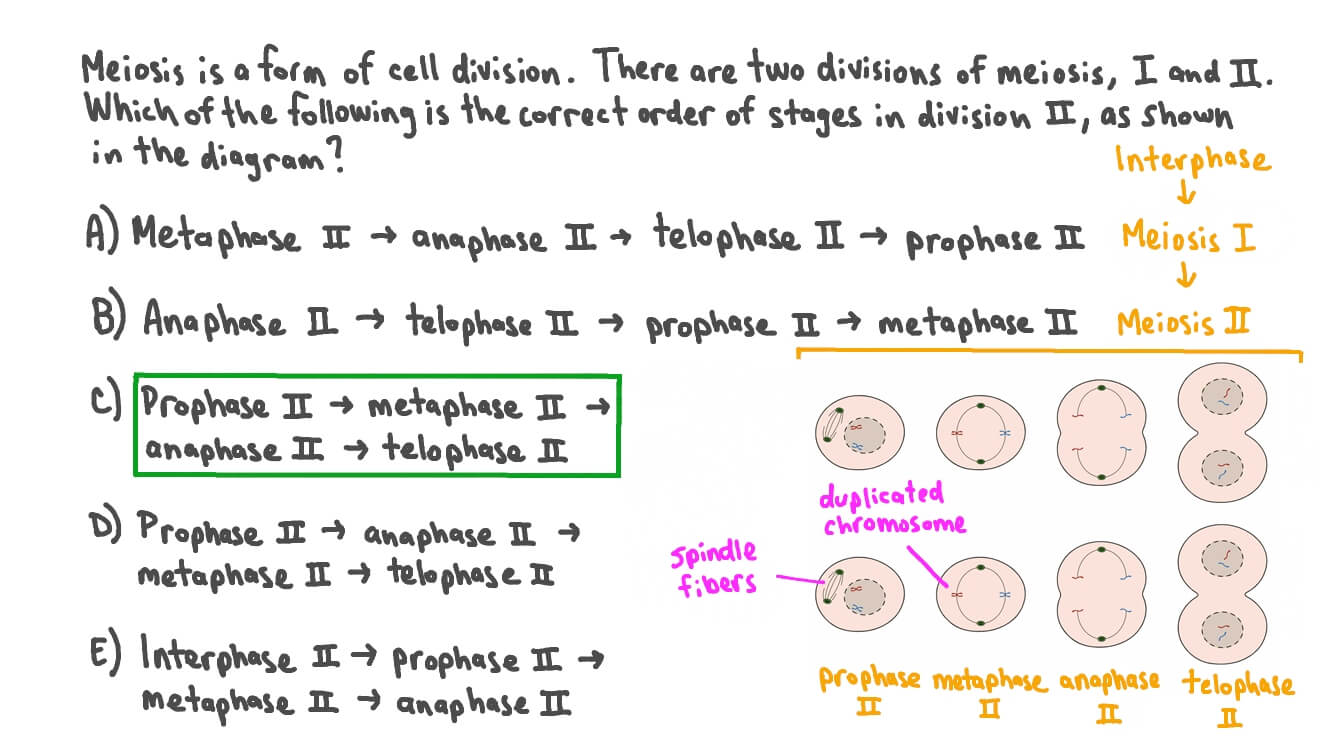 Meiosis is a form of cell division. There are two divisions of meiosis, I and II.
Which of the following is the correct order of stages in division II, as shown
in the diagram?
Interphase
↓
A) Metaphase II → anaphase II → telophase II → prophase II
Meiosis I
↓
B) Anaphase II → telophase II → prophase II → metaphase II
Meiosis II
C) Prophase II → metaphase II →
anaphase II → telophase II
D) Prophase II → anaphase II →
metaphase II → telophase II
E) Interphase II → prophase II →
metaphase II → anaphase II
duplicated
chromosome
spindle
fibers
prophase
II
metaphase
II
anaphase
II
telophase
II